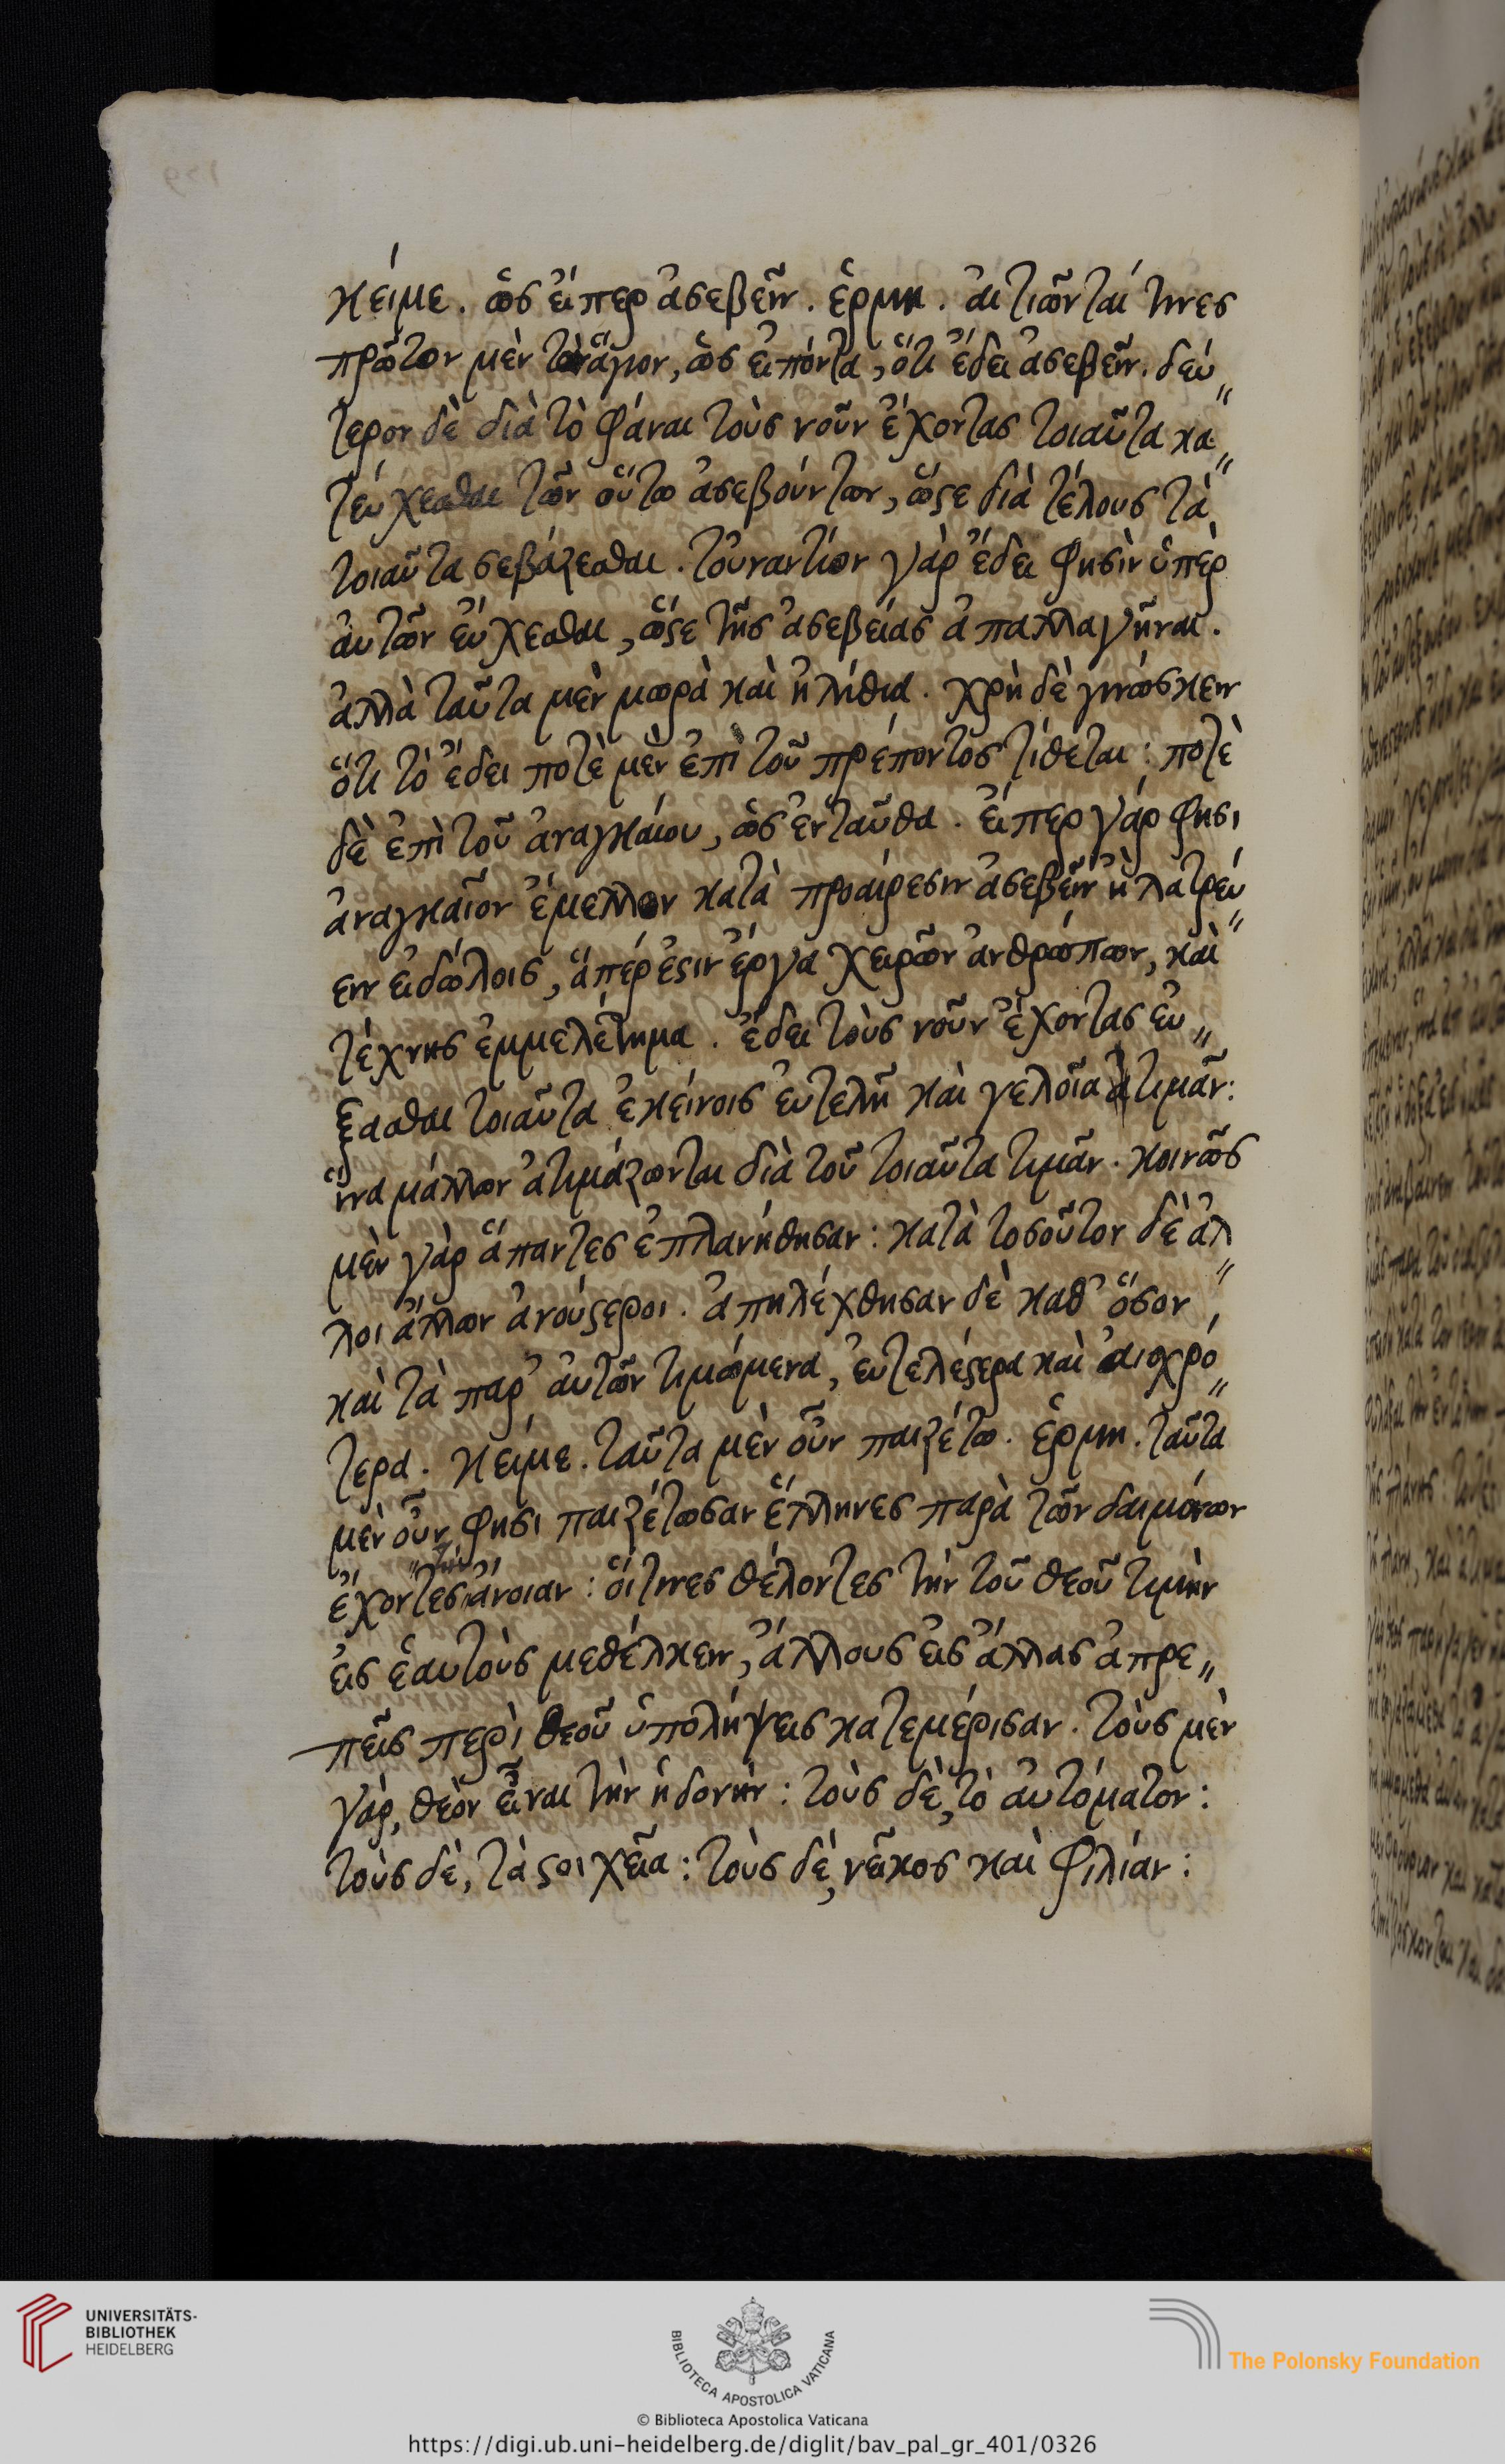 κείμε. ὡς εἴπερ ἀσεβεῖν. ἑρμη. αἰτιῶνταί τινες
πρῶτον μὲν τὸν ἅγιον, ὡς εἰπόντα, ὅτι ἔδει ἀσεβεῖν. δεύ„
τερον δὲ διὰ τὸ φάναι τοὺς νοῦν ἔχοντας τοιαῦτα κα„
τεύχεσθαι τῶν οὕτω ἀσεβούντων, ὥστε διὰ τέλους τὰ
τοιαῦτα σεβάζεσθαι. τοὐναντίον γὰρ ἔδει φησὶν ὑπὲρ
αὐτῶν εὔχεσθαι, ὥστε τῆς ἀσεβείας ἀπαλλαγῆναι.
ἀλλὰ ταῦτα μὲν μωρὰ καὶ ἠλίθια. χρὴ δὲ γινώσκειν
ὅτι τὸ ἔδει ποτὲ μὲν ἐπὶ τοῦ πρέποντος τίθεται: ποτὲ
δὲ ἐπὶ τοῦ ἀναγκαίου, ὡς ἐνταῦθα. εἴπερ γάρ φησι
ἀναγκαῖον ἔμελλον κατὰ προαίρεσιν ἀσεβεῖν ἢ λατρεύ„
ειν εἰδώλοις, ἅπέρ ἐστιν ἔργα χειρῶν ἀνθρώπων, καὶ
τέχνης ἐμμελέτημα. ἔδει τοὺς νοῦν ἔχοντας εὔ„
ξασθαι τοιαῦτα ἐκείνοις εὐτελῆ καὶ γελοῖα τιμᾶν:
ἵνα μάλλον ἀτιμάζωνται διὰ τοῦ τοιαῦτα τιμᾶν. κοινῶς
μὲν γὰρ ἅπαντες ἐπλανήθησαν: κατὰ τοσοῦτον δὲ ἄλ„
λοι ἄλλων ἀνούστεροι. ἀπηλέχθησαν δὲ καθ' ὅσον
καὶ τὰ παρ' αὐτῶν τιμώμενα, εὐτελέστερα καὶ αἰσχρό„
τερα. κείμε. ταῦτα μὲν οὖν παιζέτω. ἑρμη. ταῦτα
μὲν οὖν, φησι παιζέτωσαν ἕλληνες παρὰ τῶν δαιμόνων
ἔχοντες τὴν ἄνοιαν: οἵτινες θέλοντες τὴν τοῦ θεοῦ τιμὴν
εἰς ἑαυτοὺς μεθέλκειν, ἄλλους εἰς ἄλλας ἀπρε„
πεῖς περὶ θεοῦ ὑπολήψεις κατεμέρισαν. τοὺς μὲν
γάρ, θεὸν εἶναι τὴν ἡδονήν: τοὺς δὲ, τὸ αὐτόματον:
τοὺς δὲ, τὰ στοιχεῖα: τοὺς δὲ, νεῖκος καὶ φιλίαν:
UNIVERSITÄTS-
BIBLIOTHEK
HEIDELBERG
BIBLIOTECA APOSTOLICA VATICANA
The Polonsky Foundation
© Biblioteca Apostolica Vaticana
https://digi.ub.uni-heidelberg.de/diglit/bav_pal_gr_401/0326